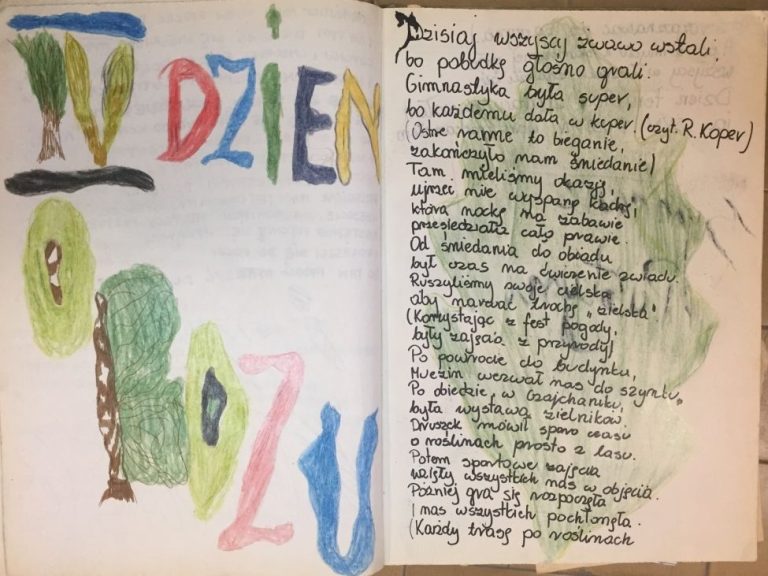 IV DZIEŃ
OBOZU
Dzisiaj wszyscy żwawo wstali,
bo pobudkę głośno grali.
Gimnastyka była super,
bo każdemu dała w kuper. (czyt. R. Koper)
(Ostre ranne to bieganie,
zakończyło nam śniadanie)
Tam mieliśmy okazję,
ujrzeć nie wyspaną
która nockę na zabawie
przesiedziała całą prawie.
Od śniadania do obiadu
był czas na ćwiczenie zwiadu.
Ruszyliśmy swoje cielska
aby narwać trochę "zielska"
(Korzystając z fest pogody,
były zajęcia z przyrody)
Po powrocie do budynku,
Muezin wezwał nas do szynku.
Po obiedzie, w czajchaniku,
była wystawa zielników.
Druszek mówił sporo czasu
o roślinach prosto z lasu.
Potem sportowe zajęcia
wzięły wszystkich nas w objęcia.
Później gra się rozpoczęła
i nas wszystkich pochłonęła.
(Każdy trasę po roślinach